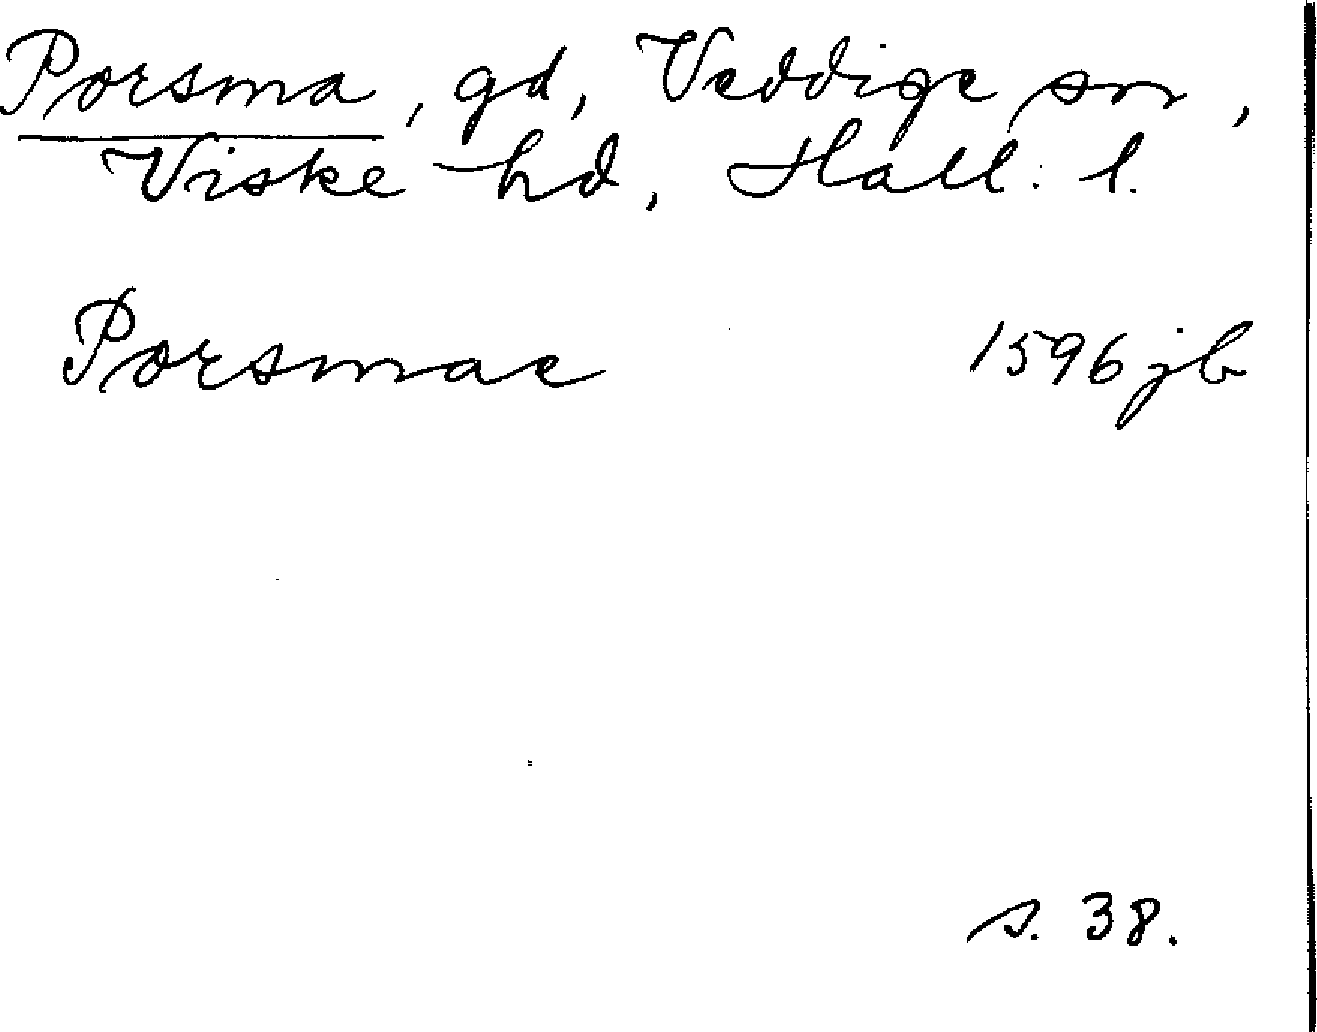 Porsma, gd, Veddige sn,
Viske hd, Hall. l.
Porsmae 1596 jb
s. 38.